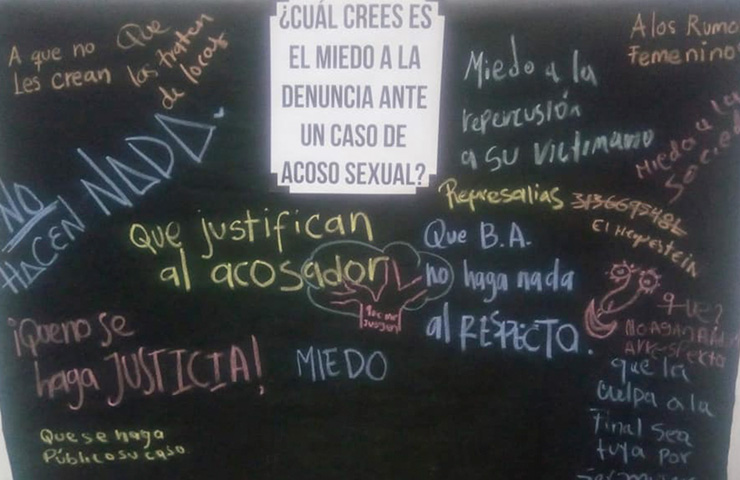 ¿CUÁL CREES ES
EL MIEDO A LA
DENUNCIA ANTE
UN CASO DE
ACOSO SEXUAL?
A que no
Les Crean
Que
las traten
de locas
NO
HACEN NADA.
Que justifican
al acosador
¡Que no se
haga JUSTICIA!
Que se haga
Público su caso
MIEDO
Miedo a la
repercusión
a su victimario
Represalias
Que B.A.
no haga nada
al RESPECTO.
A los Rumo
Femenino
Miedo a la
Socied
El
que?
que la
culpa a la
final sea
tuya por